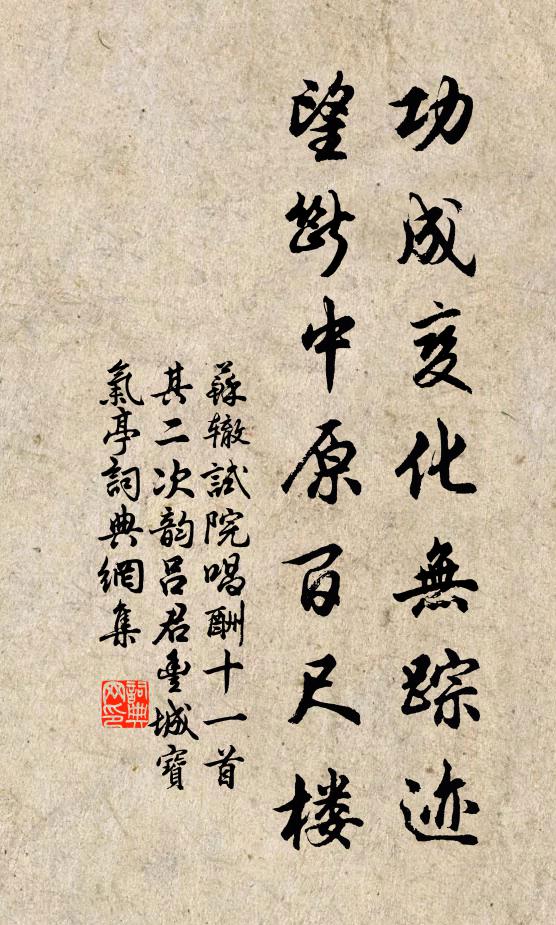 功成变化無踪迹
望断中原百尺楼
蘇辙試院唱酬十一首
其二次韵呂君豊城寶
氣亭詞典網集
詞典网印